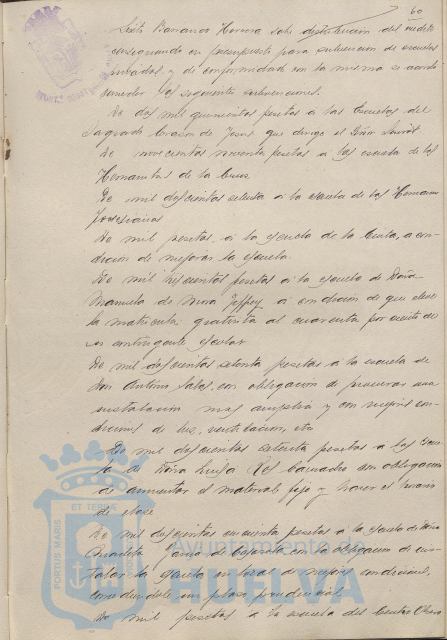 60
Sixto Barranco Herrera sobre distribución del crédito
consignado en presupuesto para subvencion de escuelas
privadas, y de conformidad con la misma se acordó
conceder las siguientes subvenciones.
De dos mil quinientas pesetas a las Escuelas del
Sagrado Corazón de Jesus que dirige el Señor
De novecientas noventa pesetas a las escuelas de las
Hermanitas de la Cruz
De mil doscientas setenta a la escuela de las Hermanas
De mil pesetas, a la escuela de la Cinta, a con-
dicion de mejorar la escuela.
De mil pesetas a la escuela de Doña
Manuela de Mora Jeffrey a condición de que eleve
la matricula gratuita al cuarenta por ciento de
su contingente escolar
De mil doscientas setenta pesetas a la escuela de
Don Antonio Salas, con obligación de procurar una
instalación mas amplia y con mejores con-
diciones de luz, ventilacion, etc
De mil doscientas setenta pesetas a la Escue-
la de Doña Luisa con obligacion
de aumentar el material fijo y
de clase
De mil doscientas cincuenta pesetas a la escuela de Doña
con la obligacion de ins-
talar la escuela en local de mejores condiciones,
un plazo prudencial.
De mil pesetas a la escuela del Centro Obrero
PORTUS MARIS ET TERRE
Ayuntamiento de
HUELVA